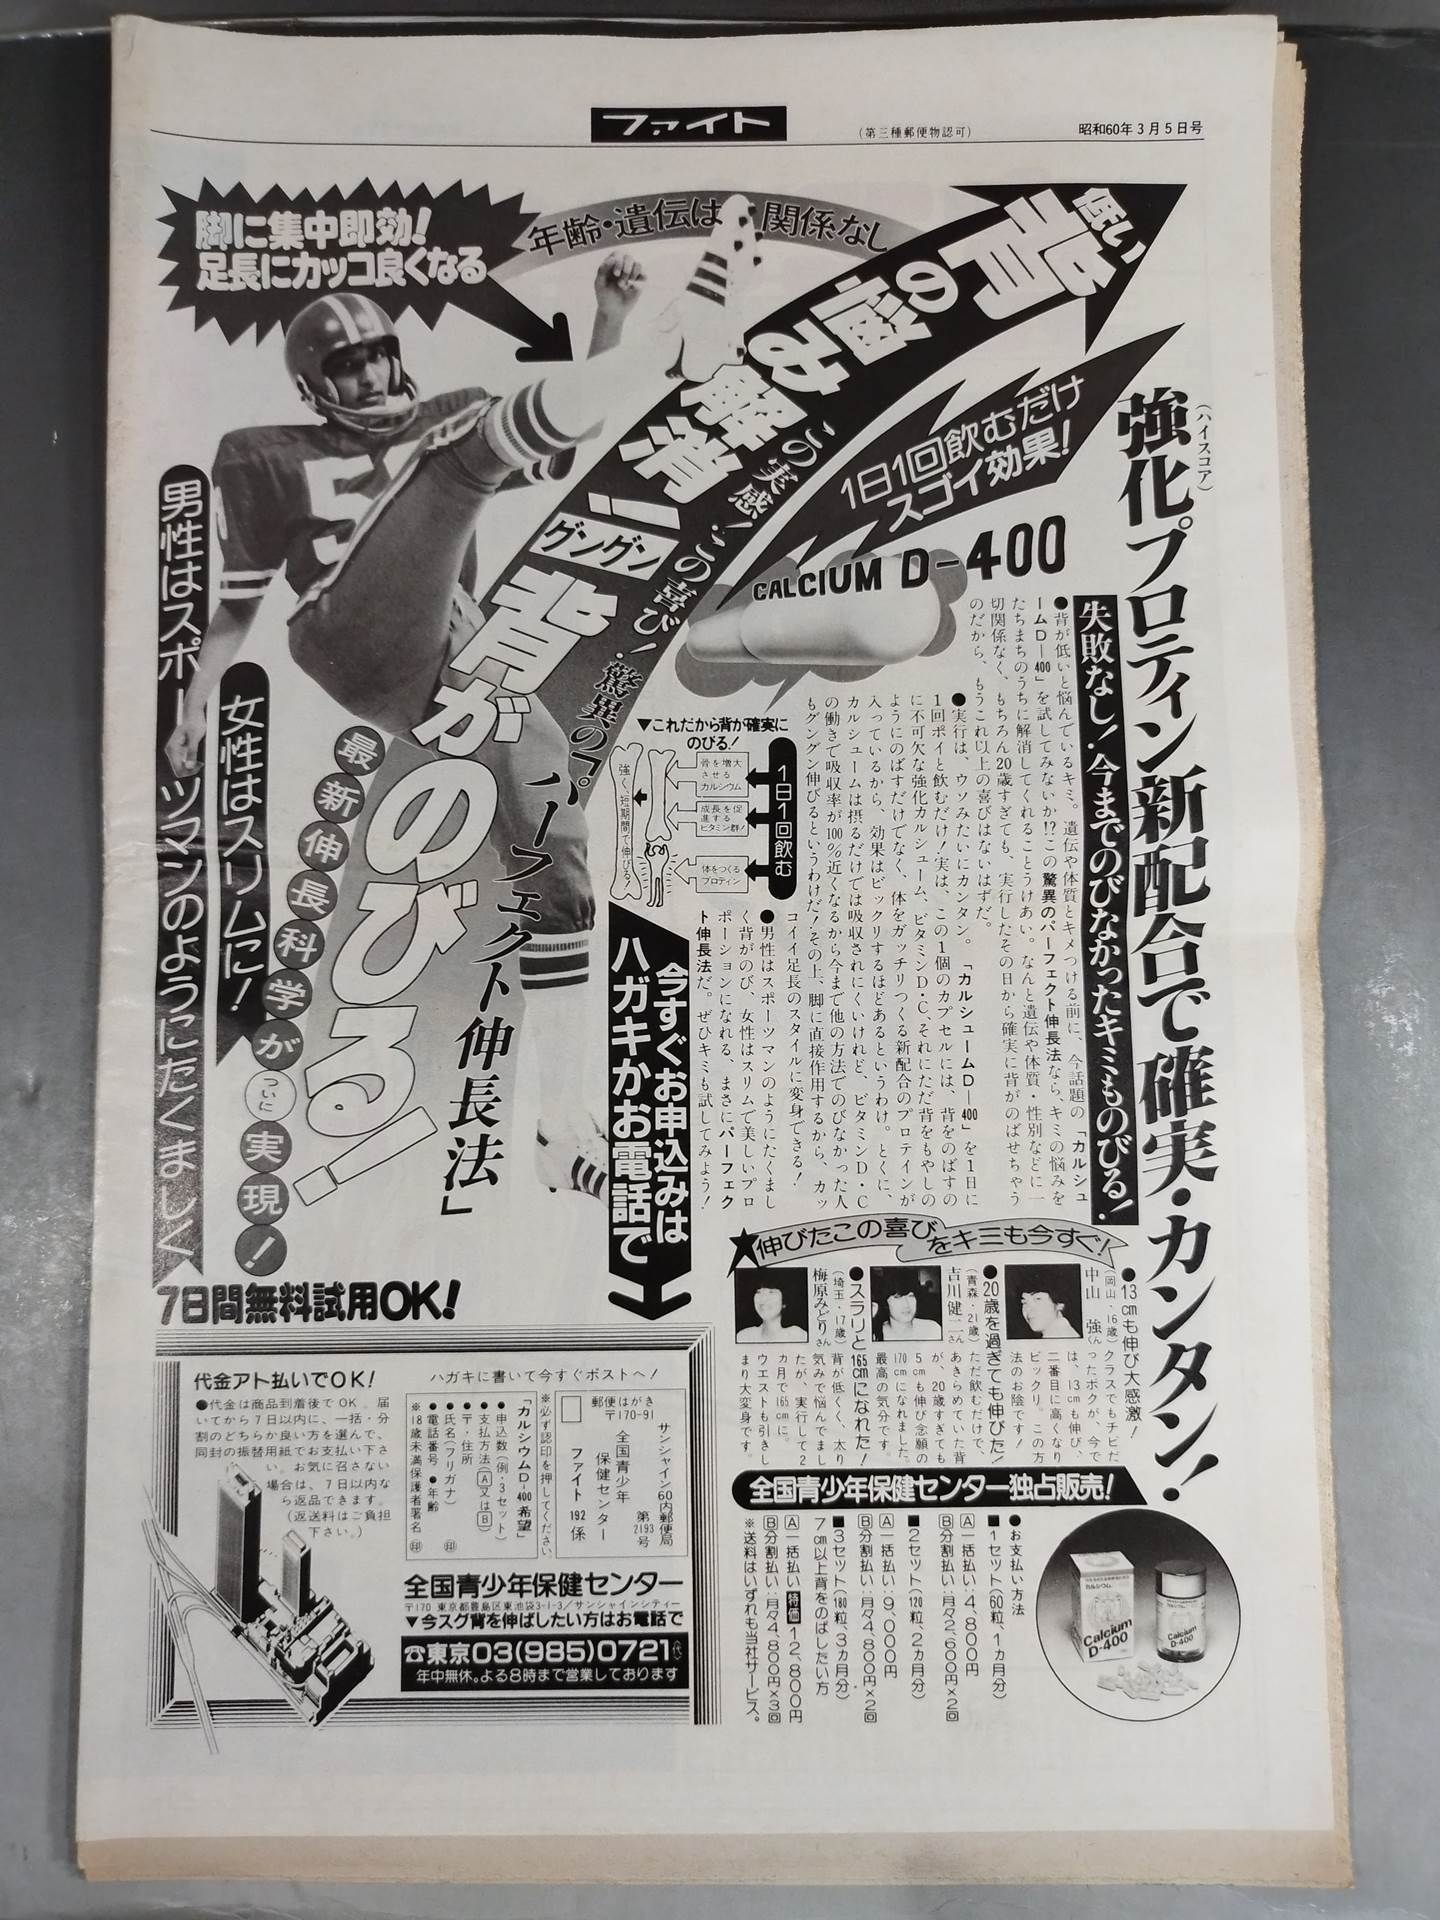 ファイト
(第三種郵便物認可)
昭和60年3月5日号
脚に集中即効!
足長にカッコ良くなる
年齢・遺伝は関係なし
低い背の悩み解消!!
この実感!この喜び!驚異の「パーフェクト伸長法」
グングン
背がのびる!
1日1回飲むだけ
スゴイ効果!
CALCIUM D-400
(ハイスコア)
強化プロティン新配合で確実・カンタン!
失敗なし!今までのびなかったキミものびる!
●背が低いと悩んでいるキミ。遺伝や体質とキメつける前に、今話題の「カルシュ
ームD-400」を試してみないか!?この驚異のパーフェクト伸長法なら、キミの悩みを
たちまちのうちに解消してくれることうけあい。なんと遺伝や体質・性別などに一
切関係なく、もちろん20歳すぎても、実行したその日から確実に背がのばせちゃう
のだから、もうこれ以上の喜びはないはずだ。
●実行は、ウソみたいにカンタン。「カルシュームD-400」を1日に
1回ポイと飲むだけ!実は、この1個のカプセルには、背をのばすの
に不可欠な強化カルシューム、ビタミンD・C、それにただ背をもやしの
ようにのばすだけでなく、体をガッチリつくる新配合のプロテインが
入っているから、効果はビックリするほどあるというわけ。とくに、
カルシュームは摂るだけでは吸収されにくいけれど、ビタミンD・C
の働きで吸収率が100%近くなるから今まで他の方法でのびなかった人
もグングン伸びるというわけだ!その上、脚に直接作用するから、カッ
コイイ足長のスタイルに変身できる!
●男性はスポーツマンのようにたくまし
く背がのび、女性はスリムで美しいプロ
ポーションになれる、まさにパーフェク
ト伸長法だ。ぜひキミも試してみよう!
▼これだから背が確実に
のびる!
1日1回飲む
骨を増大
させる
カルシウム
成長を促
進する
ビタミン群!
体をつくる
プロティン
強く、短期間で伸びる!
男性はスポーツマンのようにたくましく
女性はスリムに!
最新伸長科学がついに実現!
今すぐお申込みは
ハガキかお電話で
★伸びたこの喜びをキミも今すぐ!
●13cmも伸び大感激!
(岡山・16歳)
中山 強くん
クラスでもチビだ
ったボクが、今で
は、13cmも伸び、
二番目に高くなり
ビックリ。この方
法のお陰です!
●20歳を過ぎても伸びた!
(青森・21歳)
吉川健二さん
ただ飲むだけで、
あきらめていた背
が、20歳すぎても
5cmも伸び念願の
170cmになれました。
最高の気分です。
●スラリと165cmになれた!
(埼玉・17歳)
梅原みどりさん
背が低くく、太り
気みで悩んでまし
たが、実行して2
カ月で165cmに。
ウエストも引きし
まり大変身です。
全国青少年保健センター独占販売!
●お支払い方法
■1セット(60粒、1カ月分)
A一括払い:4,800円
B分割払い:月々2,600円×2回
■2セット(120粒、2カ月分)
A一括払い:9,000円
B分割払い:月々4,800円×2回
■3セット(180粒、3カ月分)
7cm以上背をのばしたい方
A一括払い 特価12,800円
B分割払い:月々4,800円×3回
※送料はいずれも当社サービス。
カルシウム
Calcium
D-400
Calcium
D-400
7日間無料試用OK!
代金アト払いでOK!
●代金は商品到着後でOK。届
いてから7日以内に、一括・分
割のどちらか良い方を選んで、
同封の振替用紙でお支払い下さ
い。お気に召さない
場合は、7日以内な
ら返品できます。
(返送料はご負担
下さい。)
ハガキに書いて今すぐポストへ!
郵便はがき
〒170-91
サンシャイン60内郵便局
第2193号
全国青少年
保健センター
ファイト192係
※必ず認印を押してください。
「カルシウムD-400希望」
・申込数(例・3セット)
・支払方法(A又はB)
・〒・住所
・氏名(フリガナ)印
・電話番号 ●年齢
※18歳未満保護者署名 印
全国青少年保健センター
〒170 東京都豊島区東池袋3-1-3/サンシャインシティー
▼今スグ背を伸ばしたい方はお電話で
☎東京03(985)0721代
年中無休。よる8時まで営業しております